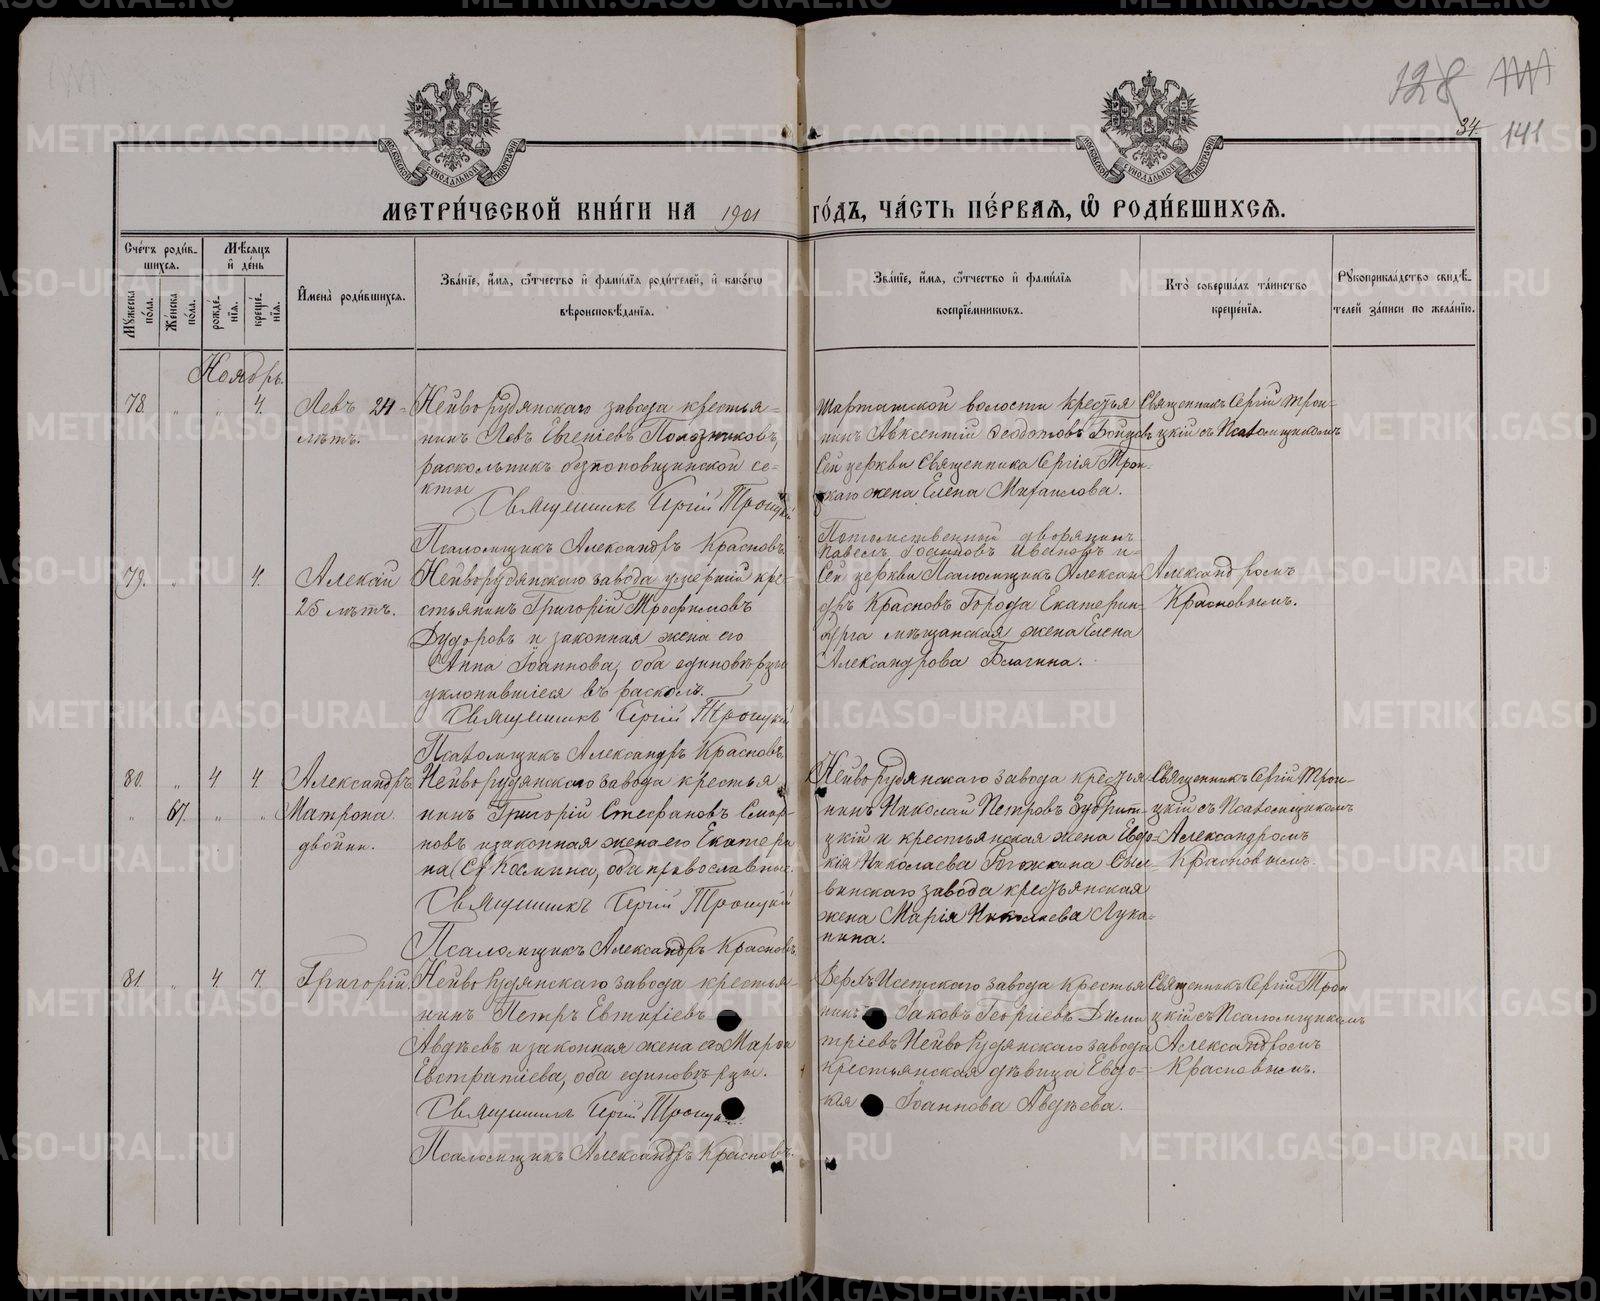 128
34
141
МОСКОВСКОЙ СѴНОДАЛЬНОЙ ТИПОГРАФІИ
МОСКОВСКОЙ СѴНОДАЛЬНОЙ ТИПОГРАФІИ
МЕТРИ́ЧЕСКОЙ КНИ́ГИ НА 1901 ГО́ДЪ, ЧА́СТЬ ПЕ́РВАЯ, Ѡ҆ РОДИ́ВШИХСЯ.
Сче́тъ роди́вшихся.
Мꙋ́жеска по́ла.
Же́нска по́ла.
Мѣ́сяцъ и҆ де́нь
рожде́нїя.
креще́нїя.
И҆мена̀ роди́вшихся.
Зва́нїе, и҆́мя, ѻ҆́тчество и҆ фами́лїя роди́телей, и҆ како́гѡ
вѣроисповѣ́данїя.
Зва́нїе, и҆́мя, ѻ҆́тчество и҆ фами́лїя
воспрїе́мниковъ.
Кто̀ соверша́лъ та́инство
креще́нїя.
Рꙋкоприкла́дство свидѣ́-
телей за́писи по жела́нїю.
Ноябрь.
78. " " 4.
Левъ 24-
лѣтъ.
Нейво Рудянскаго завода крестья-
нинъ Левъ Евгеніевъ Ползниковъ,
раскольникъ безпоповщинской се-
кты
Священникъ Сергій Троицкій
Псаломщикъ Александръ Красновъ
Шарташской волости крестья
нинъ Авксентій Ѳеодотовъ Бойцовъ
Сей церкви Священника Сергія Трои-
цкаго жена Елена Михаилова.
Священникъ Сергій Трои-
цкій съ Псаломщикомъ
79. " 4.
Алексій
25 лѣтъ.
Нейворудянскаго завода умершій кре-
стьянинъ Григорій Трофимовъ
Дудоровъ и законная жена его
Анна Іоаннова, оба единовѣрцы
уклонившіеся въ расколъ.
Священникъ Сергій Троицкій
Псаломщикъ Александръ Красновъ.
Потомственный дворянинъ
Павелъ Іоанновъ Ивановъ и
Сей церкви Псаломщикъ Алексан
дръ Красновъ Города Екатерин-
бурга мѣщанская жена Елена
Александрова Благина.
Александромъ
Красновымъ.
80. " 4 4.
" 67. " "
Александръ
Матрона
двойни.
Нейво Рудянскаго завода крестья
нинъ Григорій Стефановъ Смир-
новъ и законная жена его Екатери
на Космина, оба православные.
Священникъ Сергій Троицкій
Псаломщикъ Александръ Красновъ.
Нейво Рудянскаго завода крестья
нинъ Николай Петровъ Зубрит-
цкій и крестьянская жена Евдо-
кія Николаева Гогожкина Сыл-
винскаго завода крестьянская
жена Марія Николаева Лука-
нина.
Священникъ Сергій Трои-
цкій съ Псаломщикомъ
Александромъ
Красновымъ.
81. " 4 7.
Григорій.
Нейво Рудянскаго завода крестья-
нинъ Петръ Евтифіевъ
Авдѣевъ и законная жена его Марѳа
Евстратіева, оба единовѣрцы.
Священникъ Сергій Троицкій
Псаломщикъ Александръ Красновъ.
Верхъ Исетскаго завода крестья
нинъ Іаковъ Георгіевъ Дими
тріевъ Нейво Рудянскаго завода
крестьянская дѣвица Евдо-
кія Іоаннова Авдѣева.
Священникъ Сергій Трои
цкій съ Псаломщикомъ
Александромъ
Красновымъ.
METRIKI.GASO-URAL.RU